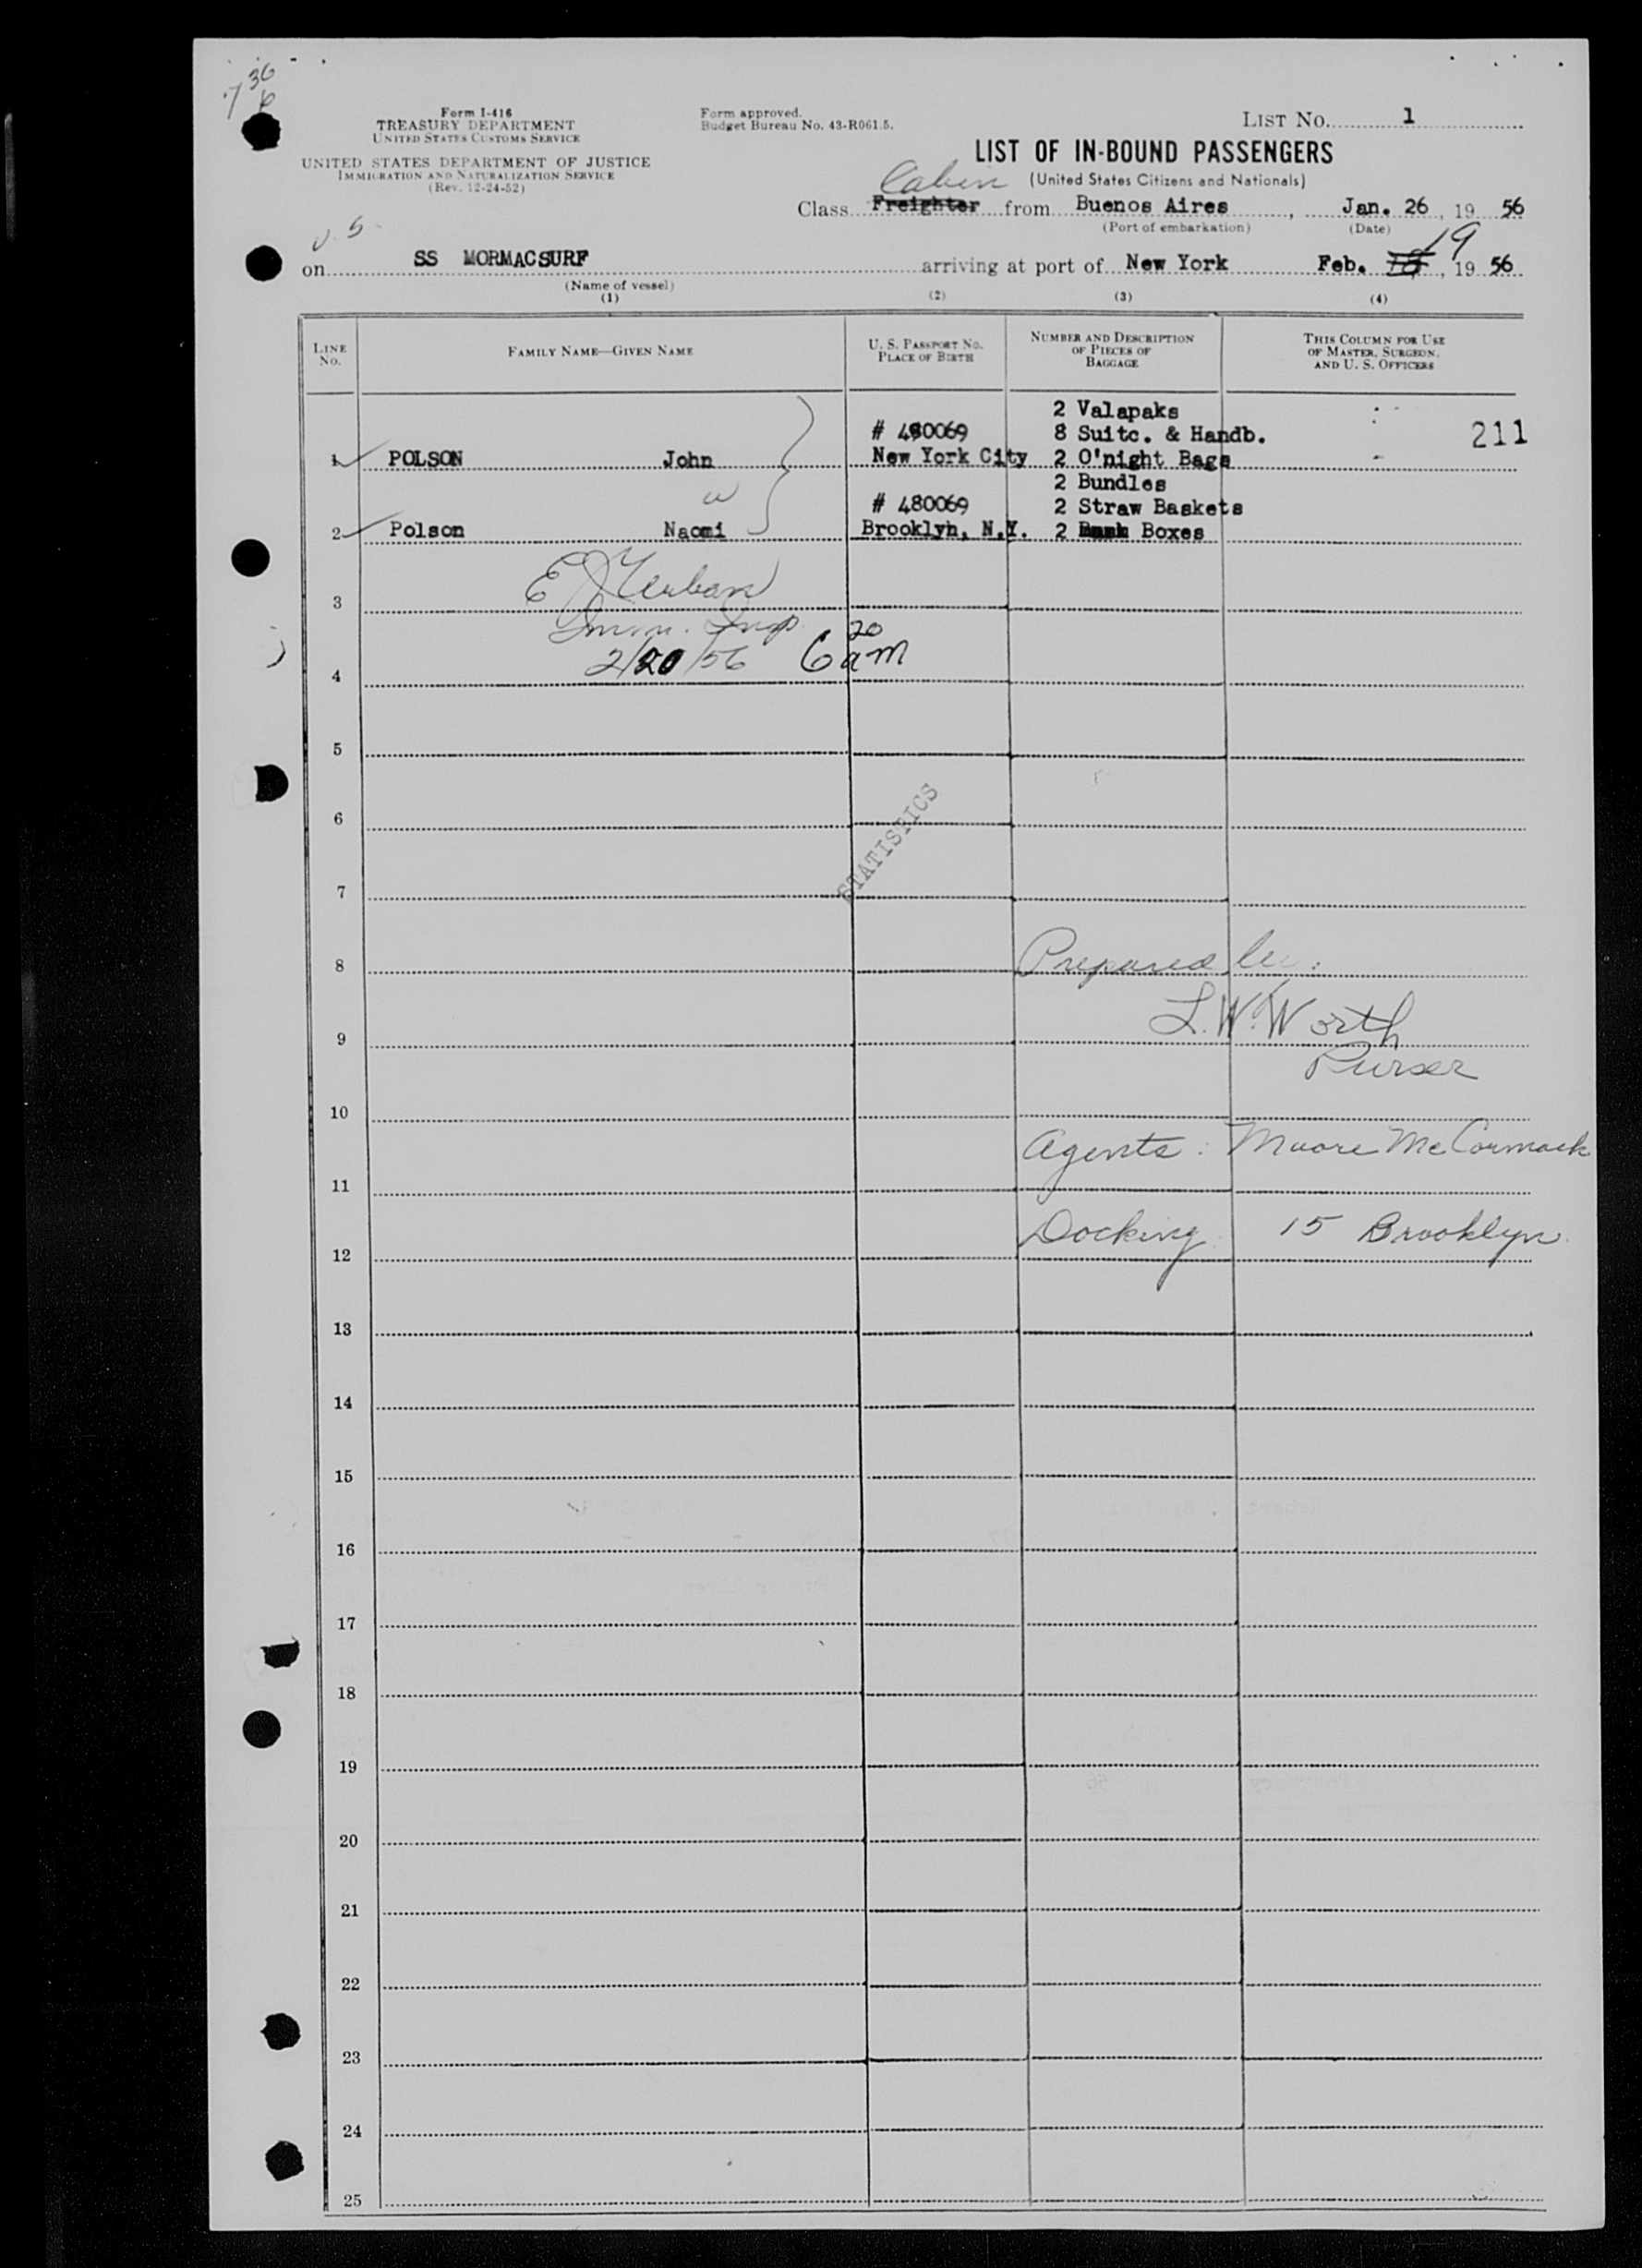 7 36
Form I-416
TREASURY DEPARTMENT
UNITED STATES CUSTOMS SERVICE
UNITED STATES DEPARTMENT OF JUSTICE
IMMIGRATION AND NATURALIZATION SERVICE
(Rev. 12-24-52)
Form approved.
Budget Bureau No. 43-R061.5.
LIST NO. 1
LIST OF IN-BOUND PASSENGERS
(United States Citizens and Nationals)
Cabin
Class Freighter from Buenos Aires, Jan. 26, 19 56
(Port of embarkation) (Date)
U.S.
on SS MORMACSURF arriving at port of New York Feb. 19, 19 56
(Name of vessel)
(1) (2) (3) (4)
LINE NO. FAMILY NAME—GIVEN NAME U. S. PASSPORT NO. PLACE OF BIRTH NUMBER AND DESCRIPTION OF PIECES OF BAGGAGE THIS COLUMN FOR USE OF MASTER, SURGEON, AND U. S. OFFICERS
2 Valapaks
# 480069 8 Suitc. & Handb. 211
1 POLSON John New York City 2 O'night Bags
2 Bundles
w # 480069 2 Straw Baskets
2 Polson Naomi Brooklyn, N.Y. 2 Boxes
3
Imm. Insp.
2/20/56 6 20 am
4
5
6
STATISTICS
7
8 Prepared by:
L. W. Worth
9
Purser
10
Agents: Moore McCormack
11
Docking 15 Brooklyn
12
13
14
15
16
17
18
19
20
21
22
23
24
25